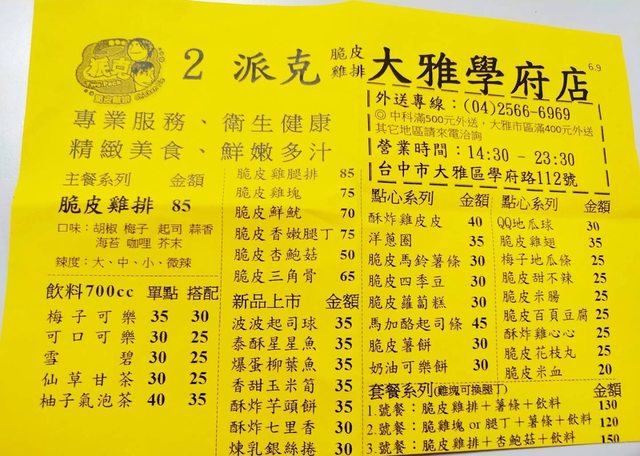 派克
2 派克 脆皮雞排 大雅學府店
6.9
專業服務、衛生健康
精緻美食、鮮嫩多汁
外送專線：(04)2566-6969
◎中科滿500元外送，大雅市區滿400元外送
其它地區請來電洽詢
營業時間：14:30 - 23:30
台中市大雅區學府路112號
主餐系列 金額
脆皮雞排 85
口味：胡椒 梅子 起司 蒜香
海苔 咖哩 芥末
辣度：大、中、小、微辣
飲料700cc 單點 搭配
梅子可樂 35 30
可口可樂 30 25
雪碧 30 25
仙草甘茶 30 25
柚子氣泡茶 40 35
脆皮雞腿排 85
脆皮雞塊 75
脆皮鮮魷 70
脆皮香嫩腿丁 75
脆皮杏鮑菇 50
脆皮三角骨 65
新品上市 金額
波波起司球 35
泰酥星星魚 35
爆蛋柳葉魚 35
香甜玉米筍 35
酥炸芋頭餅 35
酥炸七里香 30
煉乳銀絲捲 30
點心系列 金額
酥炸雞皮皮 40
洋蔥圈 35
脆皮馬鈴薯條 30
脆皮四季豆 30
脆皮蘿蔔糕 30
馬加酪起司條 45
脆皮薯餅 30
奶油可樂餅 30
點心系列 金額
QQ地瓜球 30
脆皮雞翅 35
梅子地瓜條 25
脆皮甜不辣 25
脆皮米腸 25
脆皮百頁豆腐 25
酥炸雞心心 25
脆皮花枝丸 25
脆皮米血 20
套餐系列(雞塊可換腿丁) 金額
1.號餐：脆皮雞排＋薯條＋飲料 130
2.號餐：脆皮雞塊 or 腿丁＋薯條＋飲料 120
3.號餐：脆皮雞排＋杏鮑菇＋飲料 150